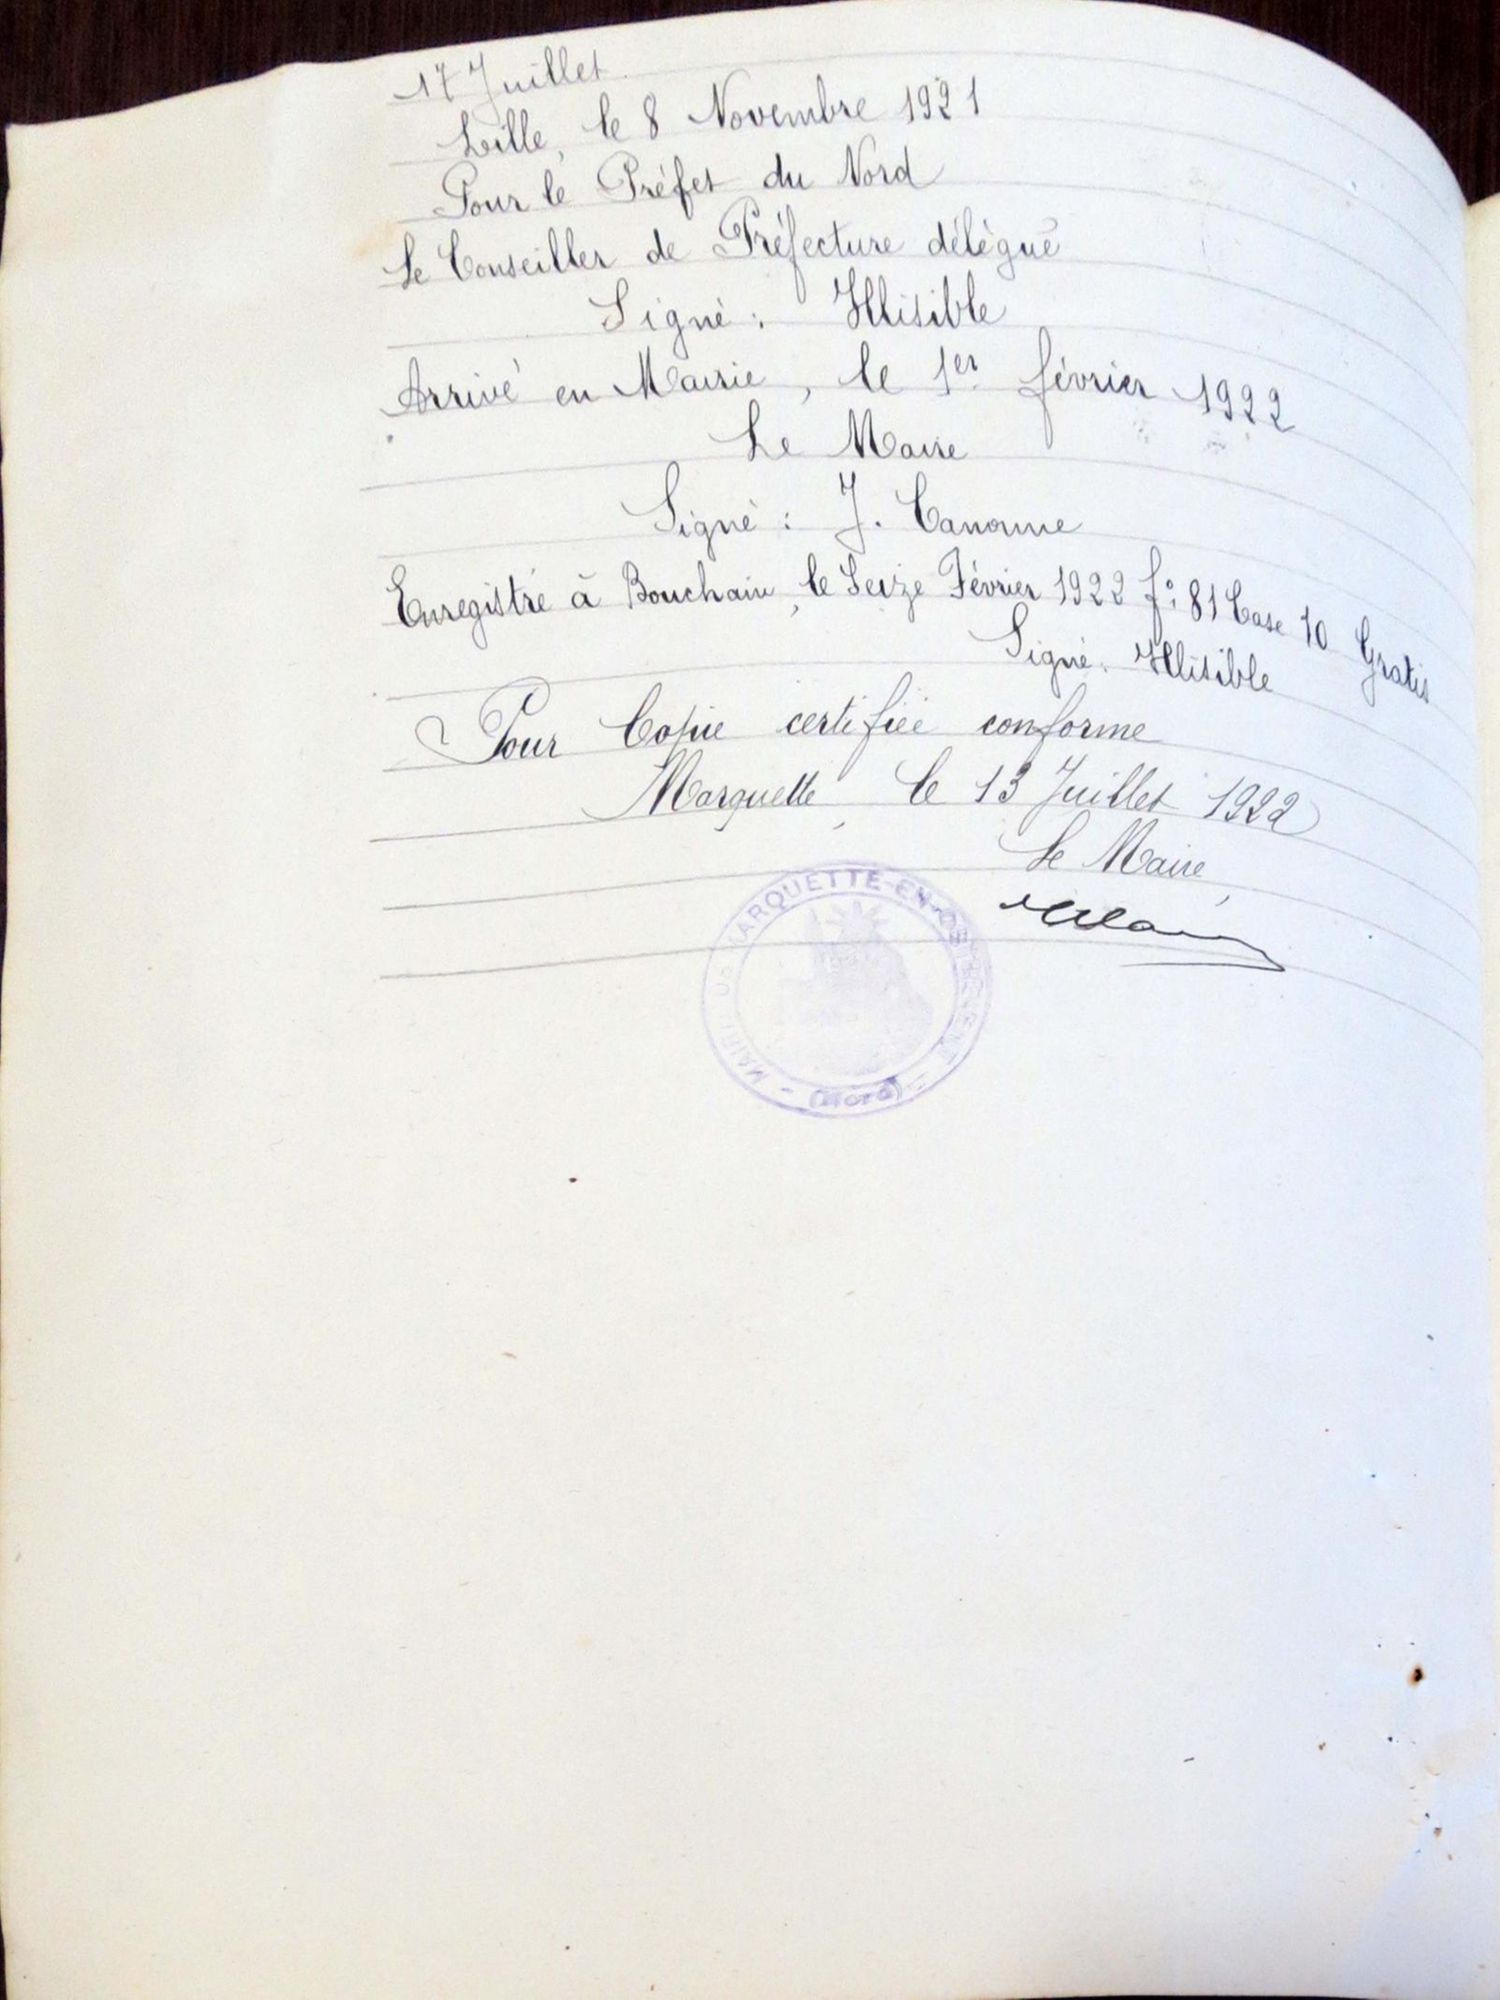 17 Juillet.
Lille, le 8 Novembre 1921
Pour le Préfet du Nord
Le Conseiller de Préfecture délégué
Signé : Illisible
Arrivé en Mairie, le 1er février 1922
Le Maire
Signé : J. Canonne
Enregistré à Bouchain, le Seize Février 1922 f°: 81 Case 10 Gratis
Signé. Illisible
Pour Copie certifiée conforme
Marquette, le 13 Juillet 1922
Le Maire,
MAIRIE DE MARQUETTE-EN-OSTREVENT
(Nord)